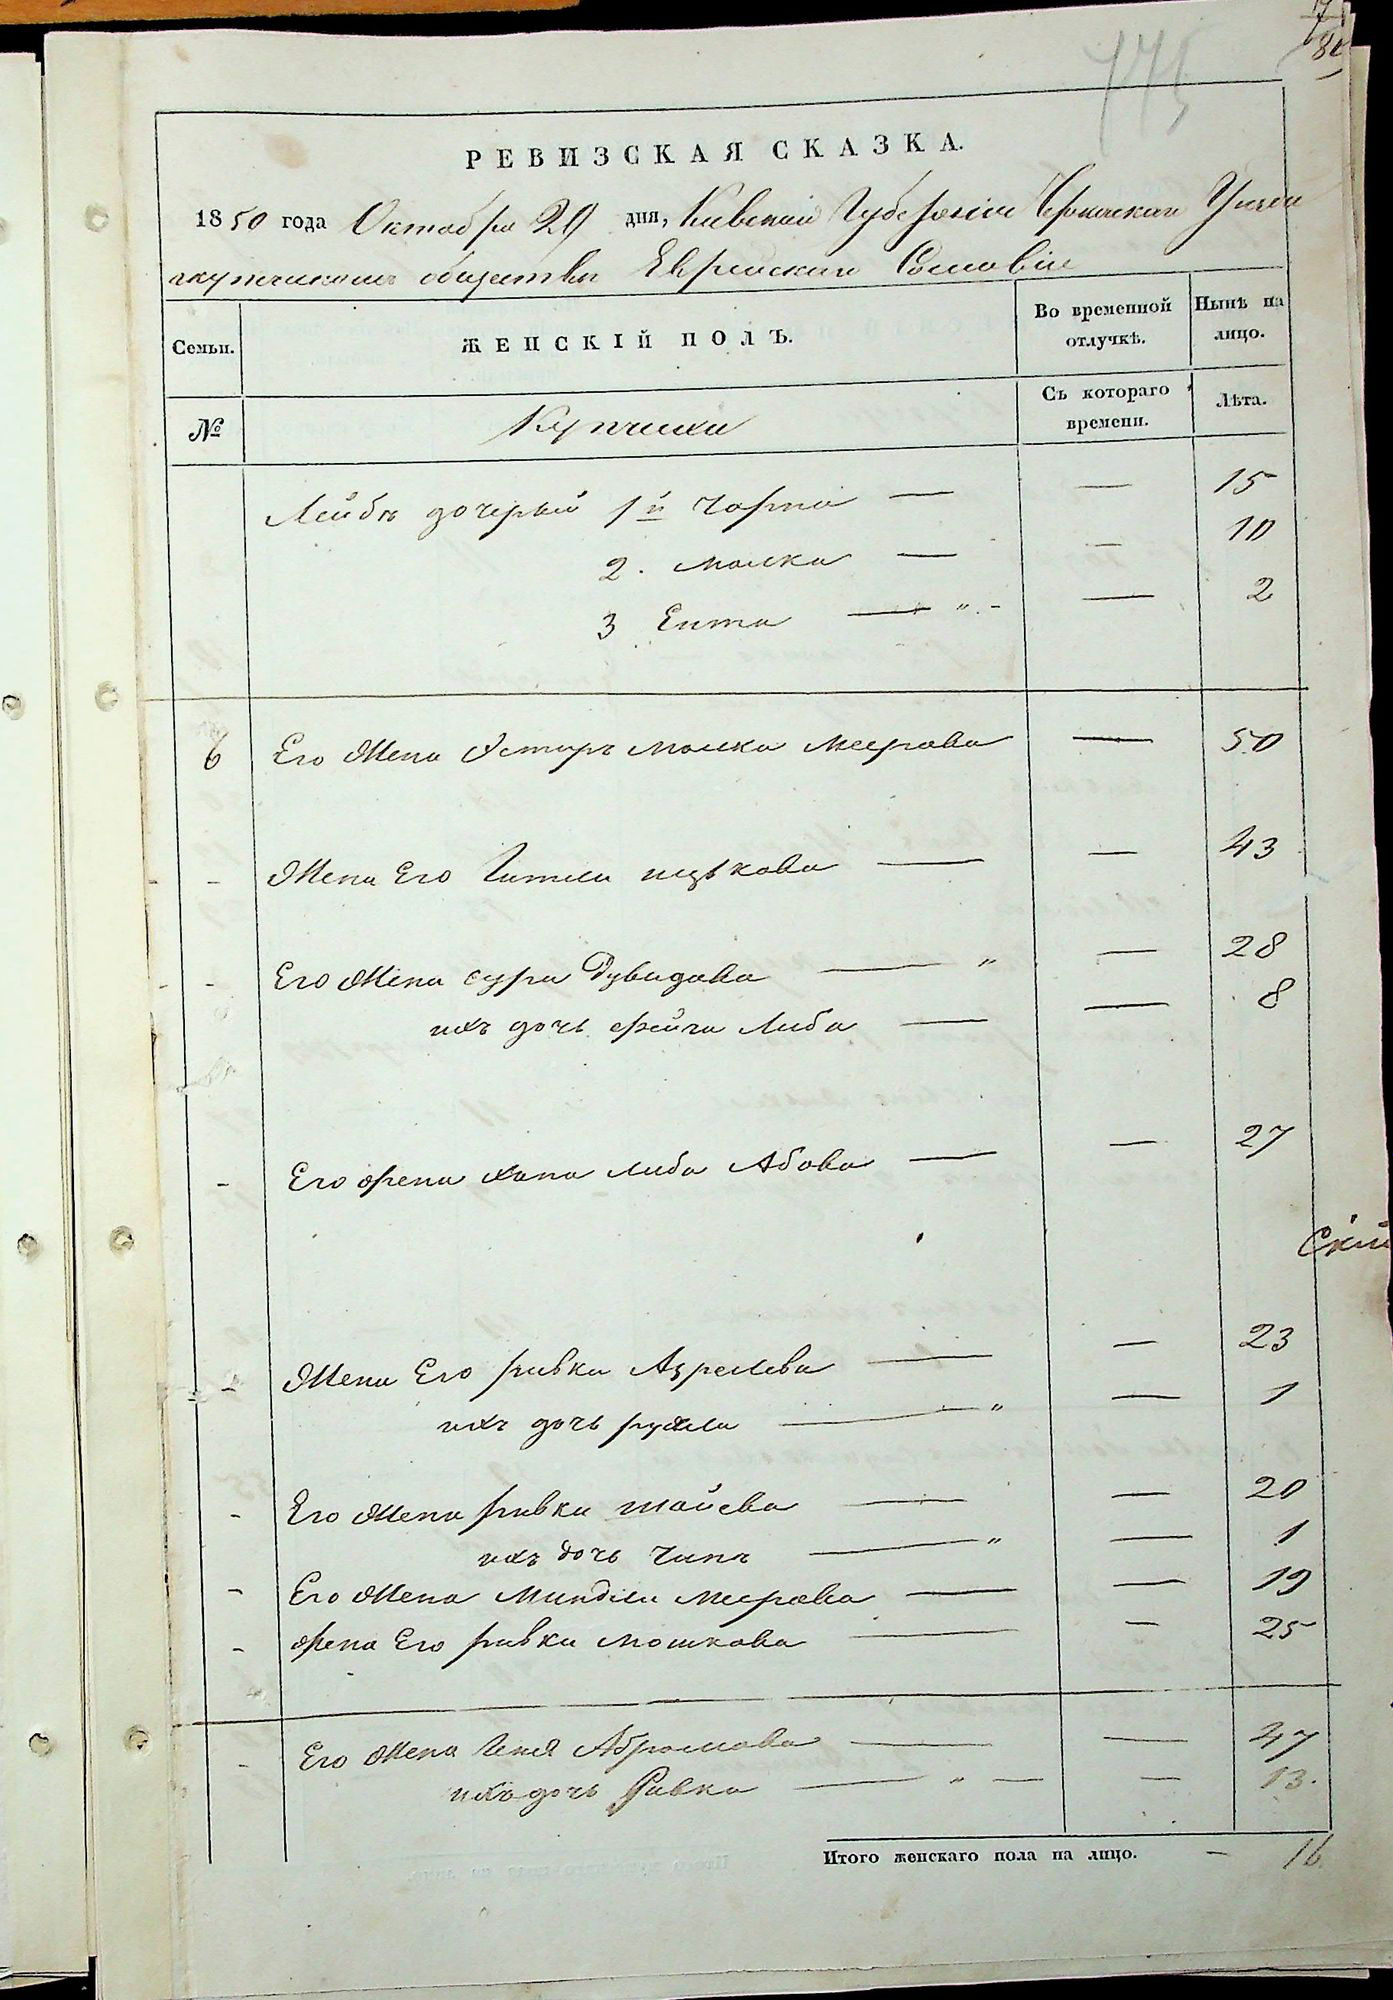 775
17
80
РЕВИЗСКАЯ СКАЗКА.
1850 года Октября 29 дня, Киевской Губернии Черкаскаго Уезда
купческаго общества Еврейскаго Сословія
Семьи.
ЖЕНСКІЙ ПОЛЪ.
Во временной отлучкѣ.
Нынѣ на лицо.
№
Купчихи
Съ котораго времени.
Лѣта.
Лейбы дочерый 1й Чарна — — 15
2. Малка — — 10
3 Ента — " - — 2
6 Его Жена Эстеръ Малка Меерова — 50
- Жена Его Гитля ицькова — — 43
- Его Жена сура Дувидова — " — 28
ихъ дочь фейга Либа — — 8
- Его жена хана либа Абова — — 27
Скій
- Жена Его ривка Азрелева — — 23
ихъ дочь рухля — " — 1
- Его Жена ривка шаиева — — 20
ихъ дочь Чипа — " — 1
- Его Жена Миндля меерова — — 19
- жена Его ривка мошкова — — 25
- Его Жена Геня Абрамова — — 47
ихъ дочь Ривка — " — — 13.
Итого женскаго пола на лицо. — 16